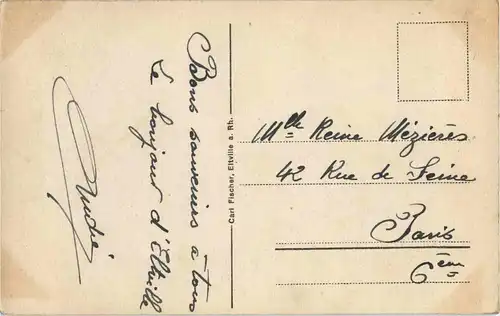 Bons souvenirs à tous
Le bonjour d'Eltville
André
Carl Fischer, Eltville a. Rh.
Mlle Reine Mézières
42 Rue de Seine
Paris
6ème